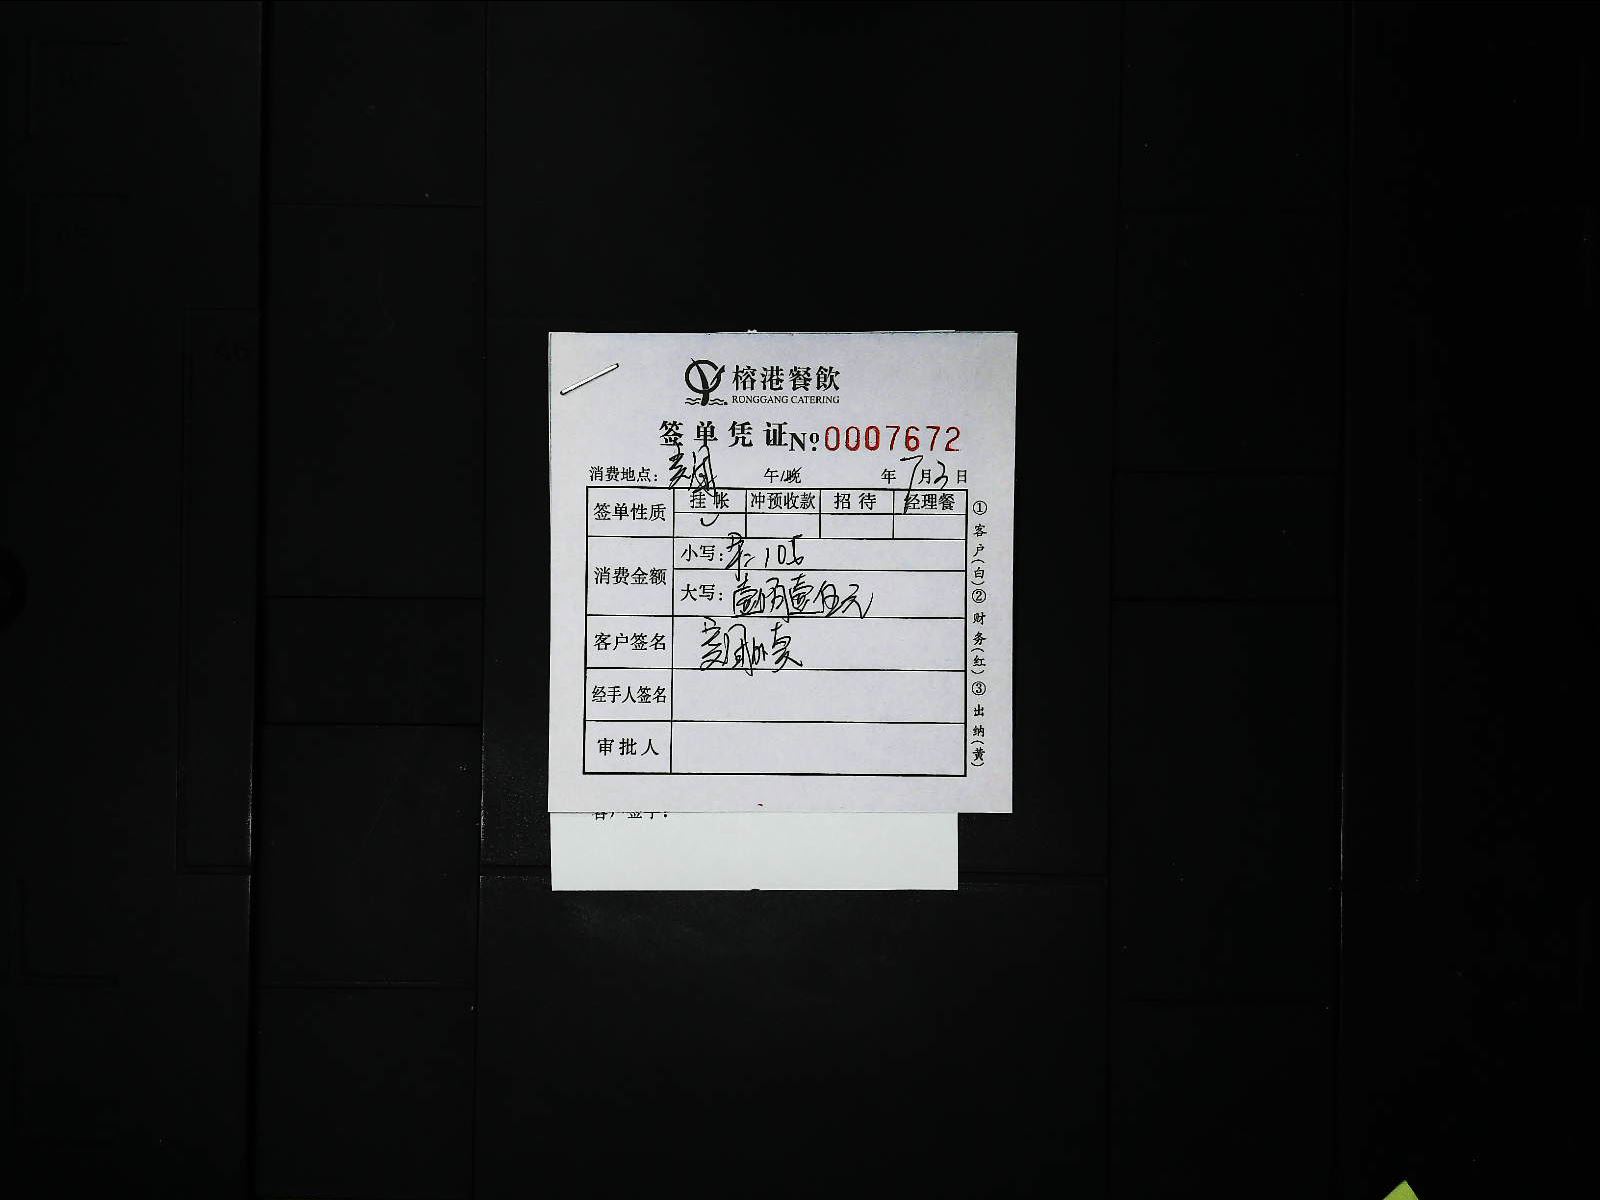 榕港餐飲
RONGGANG CATERING
签单凭证№0007672
消费地点：美团 午/晚 年7月3日
签单性质 挂帐 冲预收款 招待 经理餐
消费金额 小写： 105
大写：
客户签名 美团外卖
经手人签名
审批人
①客户(白)②财务(红)③出纳(黄)
客户签字：